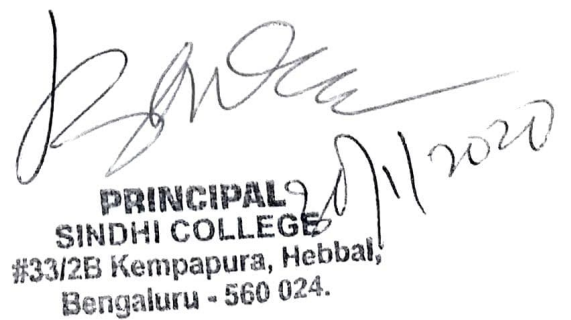 20/11/2020
PRINCIPAL
SINDHI COLLEGE
#33/2B Kempapura, Hebbal,
Bengaluru - 560 024.